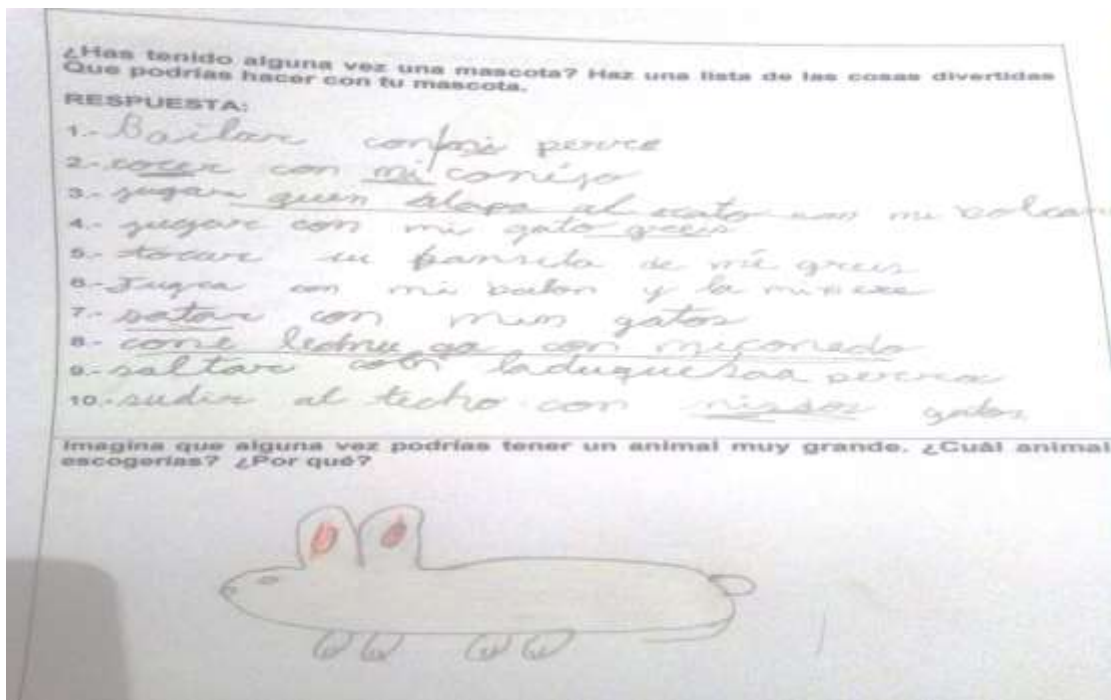 ¿Has tenido alguna vez una mascota? Haz una lista de las cosas divertidas
Que podrías hacer con tu mascota.
RESPUESTA:
1.- Bailar con mi perrce
2.- cocer con mi conéjo
3.- jugar quen al gato con mi volcan
4.- jugar con mi gato greis
5.- tocare su pansita de mi greis
6.- Jugca con mi balon y la
7.- satar con mun gatos
8.- come con miconedo
9.- saltar con laduquesaa
10.- sudir al techo con gatos
Imagina que alguna vez podrías tener un animal muy grande. ¿Cuál animal
escogerías? ¿Por qué?